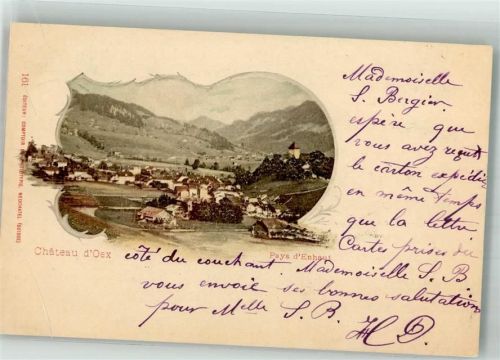 161 EDITEUR: COMPTOIR DE PHOTOTYPIE, NEUCHATEL (SUISSE)
Château d'Oex
Pays d'Enhaut
Mademoiselle
S. Bergier
espère que
vous avez reçu
le carton expédié
en même temps
que la lettre
Cartes prises du
côté du couchant. Mademoiselle S. B.
vous envoie ses bonnes salutations
pour Melle S. B.
H D.